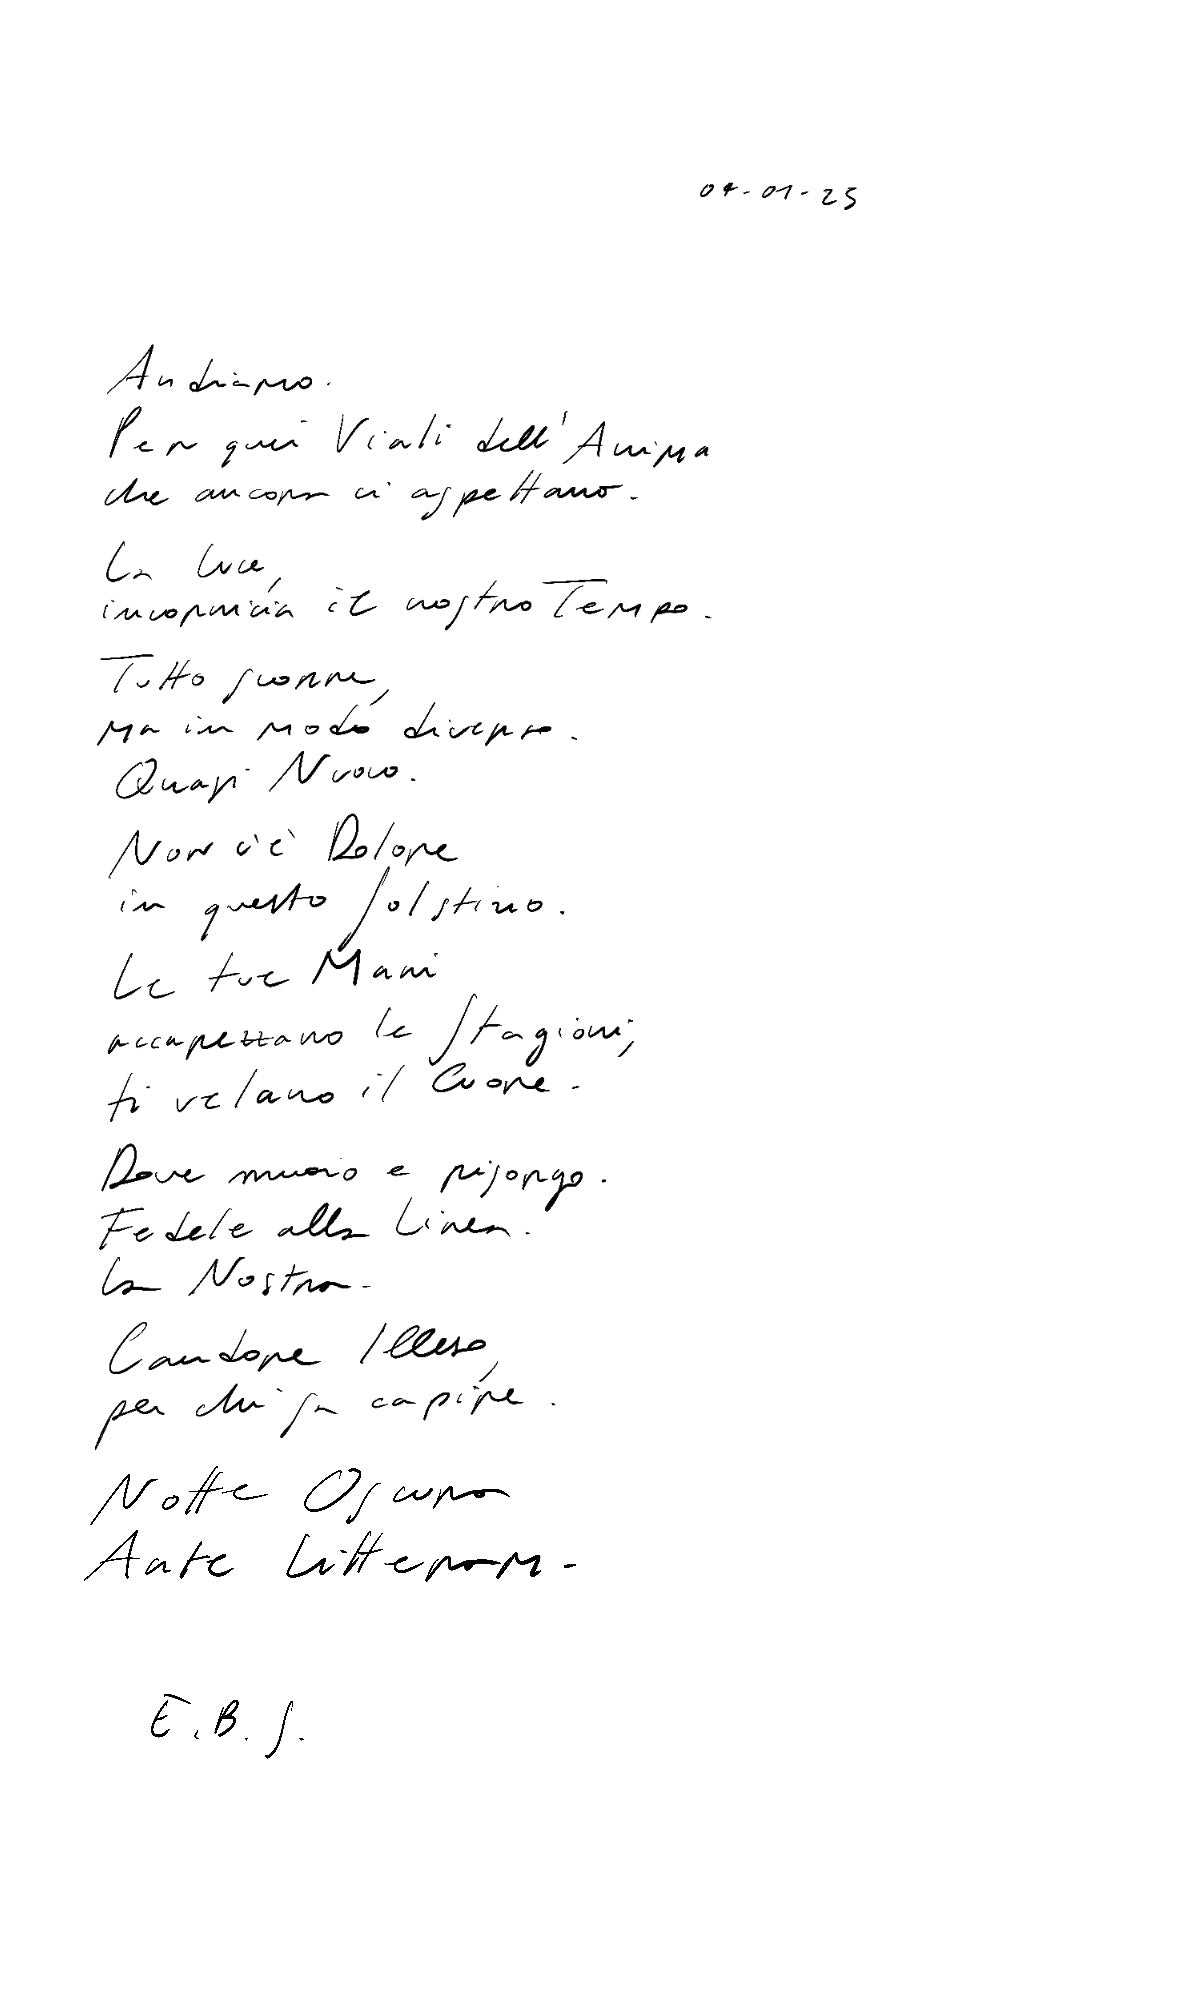 04-01-25
Andiamo.
Per quei Viali dell'Anima
che ancora ci aspettano.
La luce,
incornicia il nostro Tempo.
Tutto scorre,
ma in modo diverso.
Quasi Nuovo.
Non c'è Dolore
in questo Solstizio.
Le tue Mani
accarezzano le Stagioni,
ti velano il Cuore.
Dove muoio e risorgo.
Fedele alla Linea.
La Nostra.
Candore Illeso,
per chi sa capire.
Notte Oscura
Ante Litteram.
E.B.S.